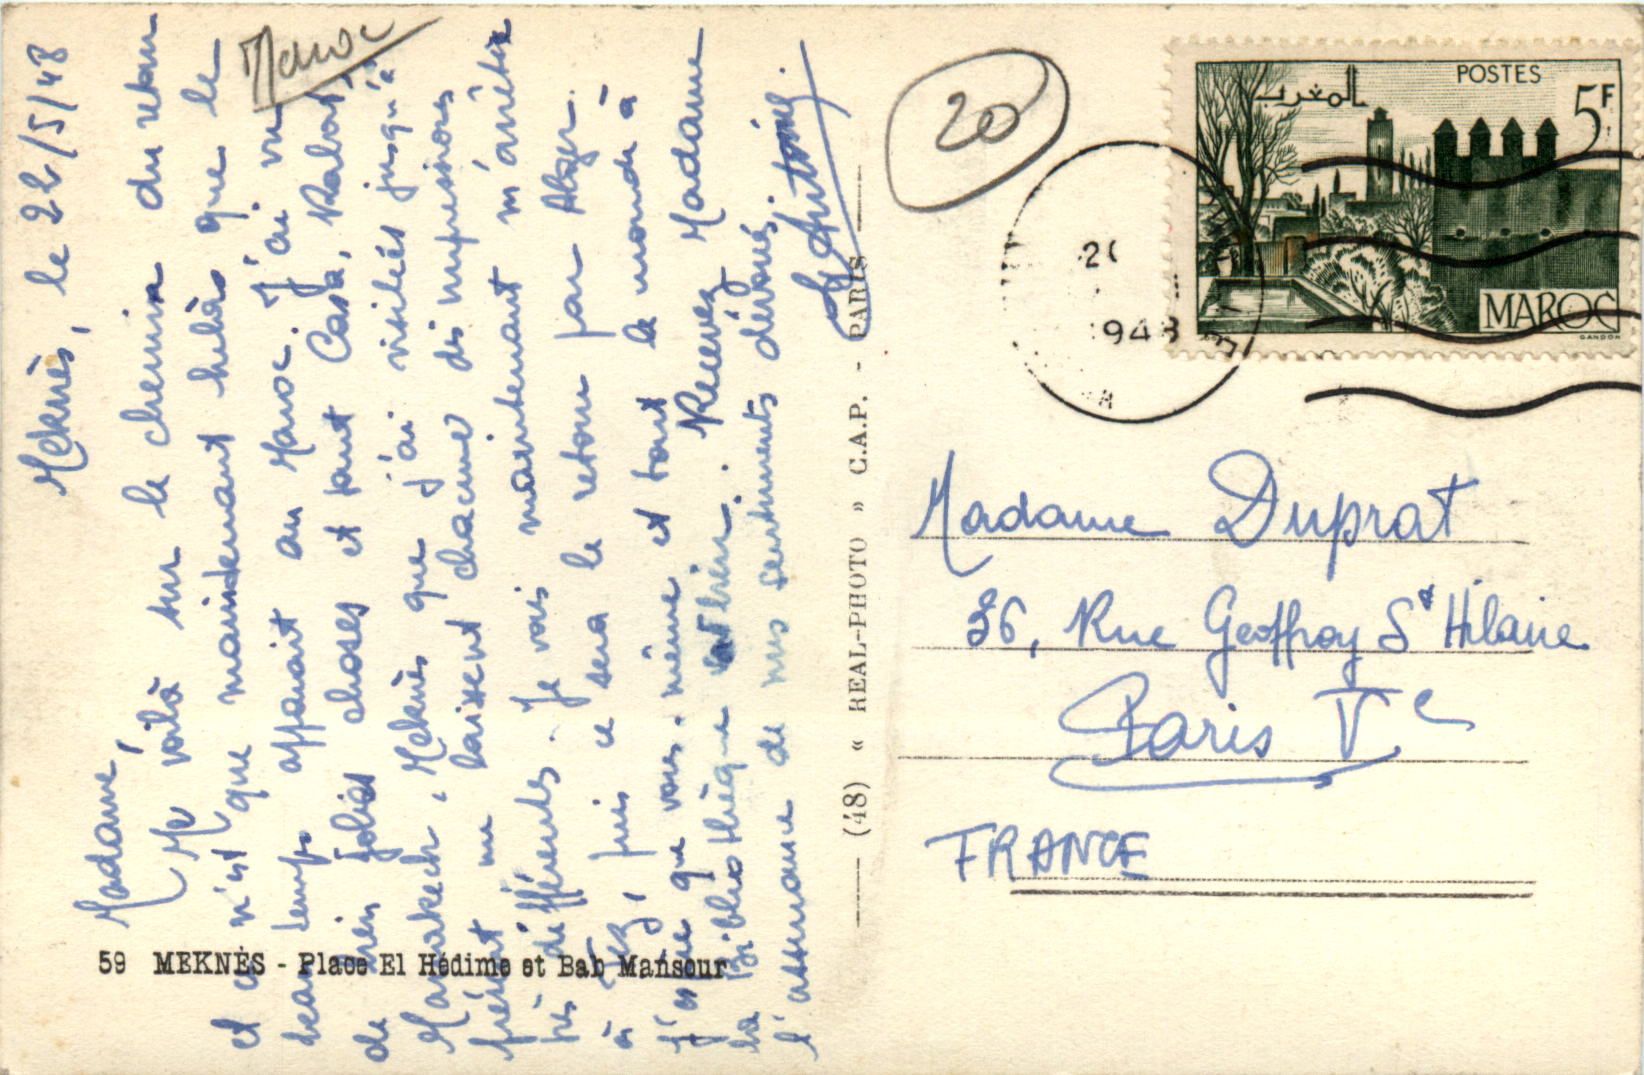 Meknès, le 22/5/48
Madame,
Me voilà sur le chemin du retour
et ce n'est que maintenant hélas que le
beau temps apparait au Maroc. J'ai vu
de bien jolies choses et tant Casa, Rabat,
Marrakech, Meknès que j'ai visités jusqu'à
présent me laissent chacune des impressions
très différentes. Je vais maintenant m'arrêter
à Fez, puis ce sera le retour par Alger.
J'espère que vous-même et tout le monde à
la Bibliothèque va bien. Recevez Madame
l'assurance de mes sentiments dévoués.
Maroc
20
59 MEKNÈS - Place El Hédime et Bab Mansour
(48) « REAL-PHOTO » C.A.P. - PARIS
المغرب
POSTES
5F
MAROC
GANDON
1948
Madame Duprat
36, Rue Geoffroy St Hilaire
Paris Ve
FRANCE